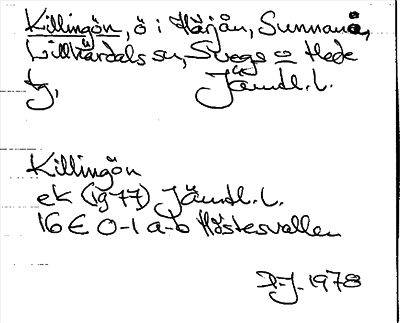 Killingön, ö i Härjån, Sunnanå,
Lillhärdals sn, Svegs o Hede
tg, Jämtl. l.
Killingön
ek (1977) Jämtl. l.
16 E 0-1 a-b Höstesvallen
1978